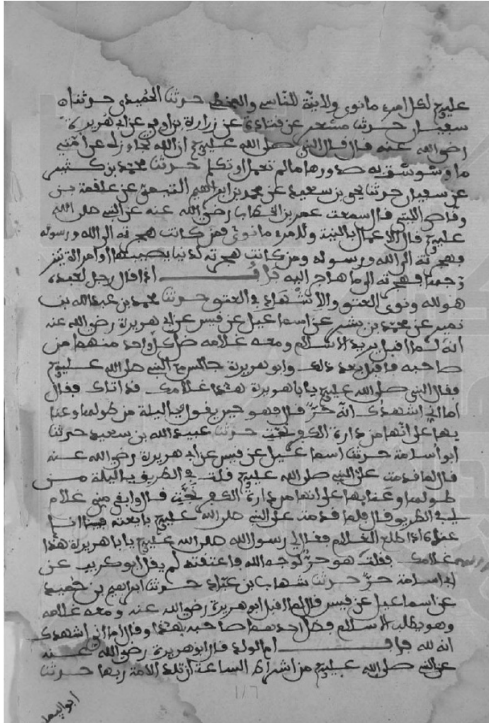 عليه لكل امرئ ما نوى ولا نية للناسي والمخطئ حدثنا الحميدي حدثنا
سفيان حدثنا مسعر عن قتادة عن زرارة بن اوفى عن ابي هريرة
رضي الله عنه قال قال النبي صلى الله عليه ان الله تجاوز لي عن امتي
ما وسوست به صدورها ما لم تعمل او تكلم حدثنا محمد بن كثير
عن سفيان حدثنا يحيى بن سعيد عن محمد بن ابراهيم التيمي عن علقمة بن
وقاص الليثي قال سمعت عمر بن الخطاب رضي الله عنه عن النبي صلى الله
عليه قال الاعمال بالنية ولامرء ما نوى فمن كانت هجرته الى الله ورسوله
فهجرته الى الله ورسوله ومن كانت هجرته لدنيا يصيبها او امراة يتز
وجها فهجرته الى ما هاجر اليه باب اذا قال رجل لعبده
هو لله ونوى العتق والاشهاد في العتق حدثنا محمد بن عبد الله بن
نمير عن محمد بن بشر عن اسماعيل عن قيس عن ابي هريرة رضي الله عنه
انه لما اقبل يريد الاسلام ومعه غلامه ضل كل واحد منهما من
صاحبه فاقبل بعد ذلك وابو هريرة جالس مع النبي صلى الله عليه
فقال النبي صلى الله عليه يا با هريرة هذا غلامك قد اتاك فقال
اما اني اشهدك انه حر قال فهو حين يقول يا ليلة من طولها وعنا
يها على انها من دارة الكفر نجت حدثنا عبيد الله بن سعيد حدثنا
ابو اسامة حدثنا اسماعيل عن قيس عن ابي هريرة رضي الله عنه
قال لما قدمت على النبي صلى الله عليه قلت في الطريق يا ليلة من
طولها وعنايها على انها من دارة الكفر نجت قال وابق مني غلام
لي في الطريق قال فلما قدمت على النبي صلى الله عليه بايعته فبينا انا
عنده اذ طلع الغلام فقال لي رسول الله صلى الله عليه يا با هريرة هذا
غلامك فقلت هو حر لوجه الله فاعتقته لم يقل ابو كريب عن
ابي اسامة حر حدثنا شهاب بن عباد حدثنا ابراهيم بن حميد
عن اسماعيل عن قيس قال لما اقبل ابو هريرة رضي الله عنه ومعه غلامه
وهو يطلب الاسلام فضل احدهما صاحبه بهذا وقال اما اني اشهدك
انه لله باب ام الولد قال ابو هريرة رضي الله عنه
عن النبي صلى الله عليه من اشراط الساعة ان تلد الامة ربها حدثنا
ابو اليمان